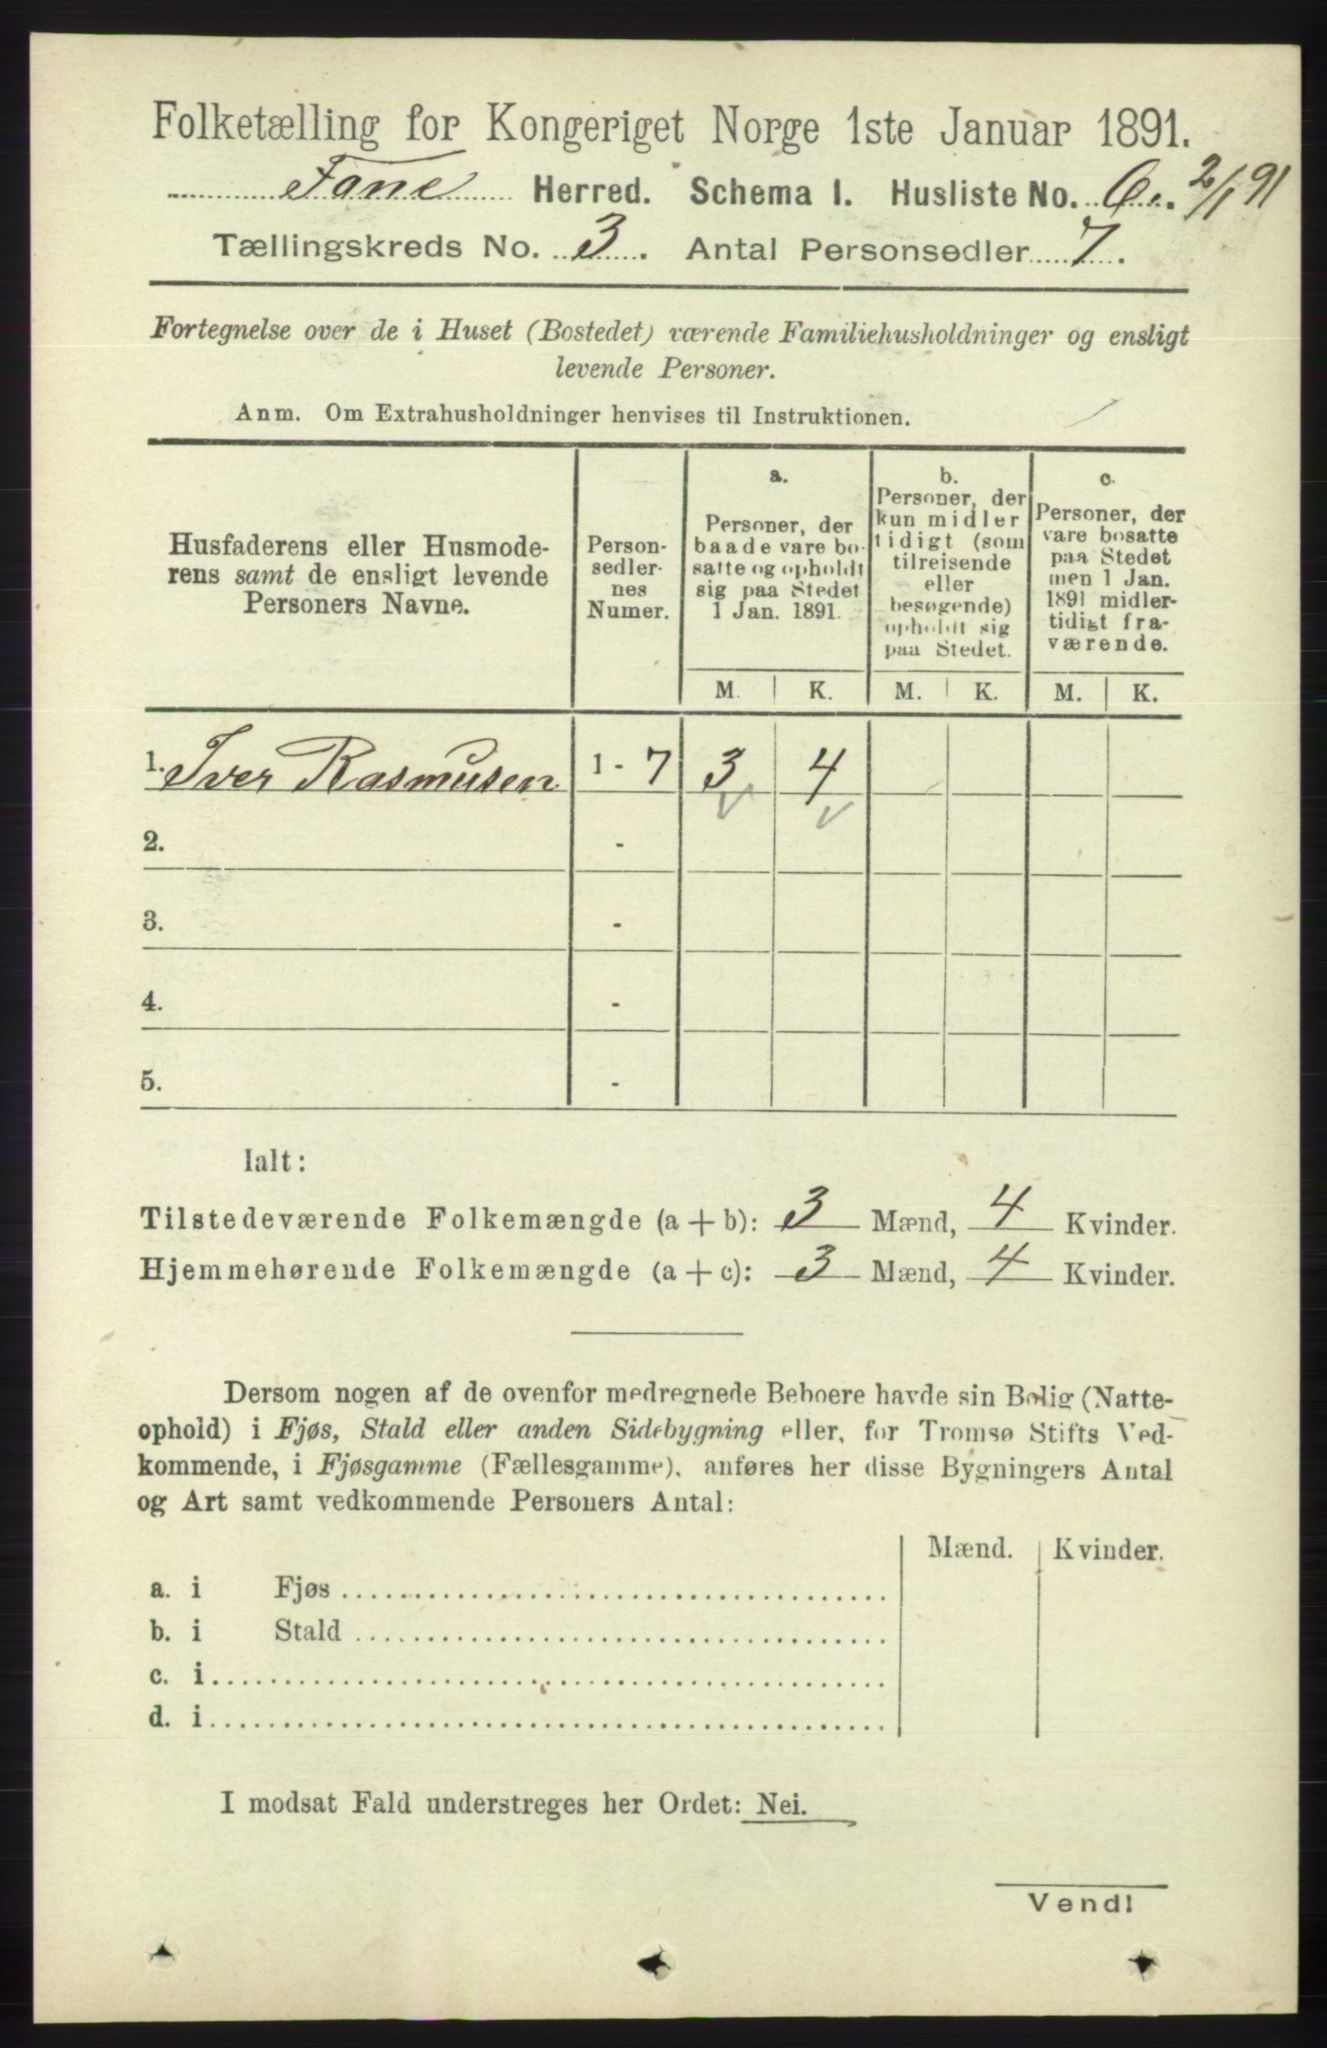 Folketælling for Kongeriget Norge 1ste Januar 1891.
Fane Herred. Schema I. Husliste No. 6. 2/1 91
Tællingskreds No. 3. Antal Personsedler 7.
Fortegnelse over de i Huset (Bostedet) værende Familiehusholdninger og ensligt
levende Personer.
Anm. Om Extrahusholdninger henvises til Instruktionen.
Husfaderens eller Husmode-
rens samt de ensligt levende
Personers Navne.
Person-
sedler-
nes
Numer.
a.
Personer, der
baade vare bo-
satte og opholdt
sig paa Stedet
1 Jan. 1891.
b.
Personer, der
kun midler
tidigt (som
tilreisende
eller
besøgende)
opholdt sig
paa Stedet.
c.
Personer, der
vare bosatte
paa Stedet
men 1 Jan.
1891 midler-
tidigt fra-
værende.
M. K. M. K. M. K.
1. Iver Rasmusen 1 - 7 3 4
2. -
3. -
4. -
5. -
Ialt:
Tilstedeværende Folkemængde (a + b): 3 Mænd, 4 Kvinder.
Hjemmehørende Folkemængde (a + c): 3 Mænd, 4 Kvinder.
Dersom nogen af de ovenfor medregnede Beboere havde sin Bolig (Natte-
ophold) i Fjøs, Stald eller anden Sidebygning eller, for Tromsø Stifts Ved-
kommende, i Fjøsgamme (Fællesgamme), anføres her disse Bygningers Antal
og Art samt vedkommende Personers Antal:
Mænd. Kvinder.
a. i Fjøs
b. i Stald
c. i
d. i
I modsat Fald understreges her Ordet: Nei.
Vend!